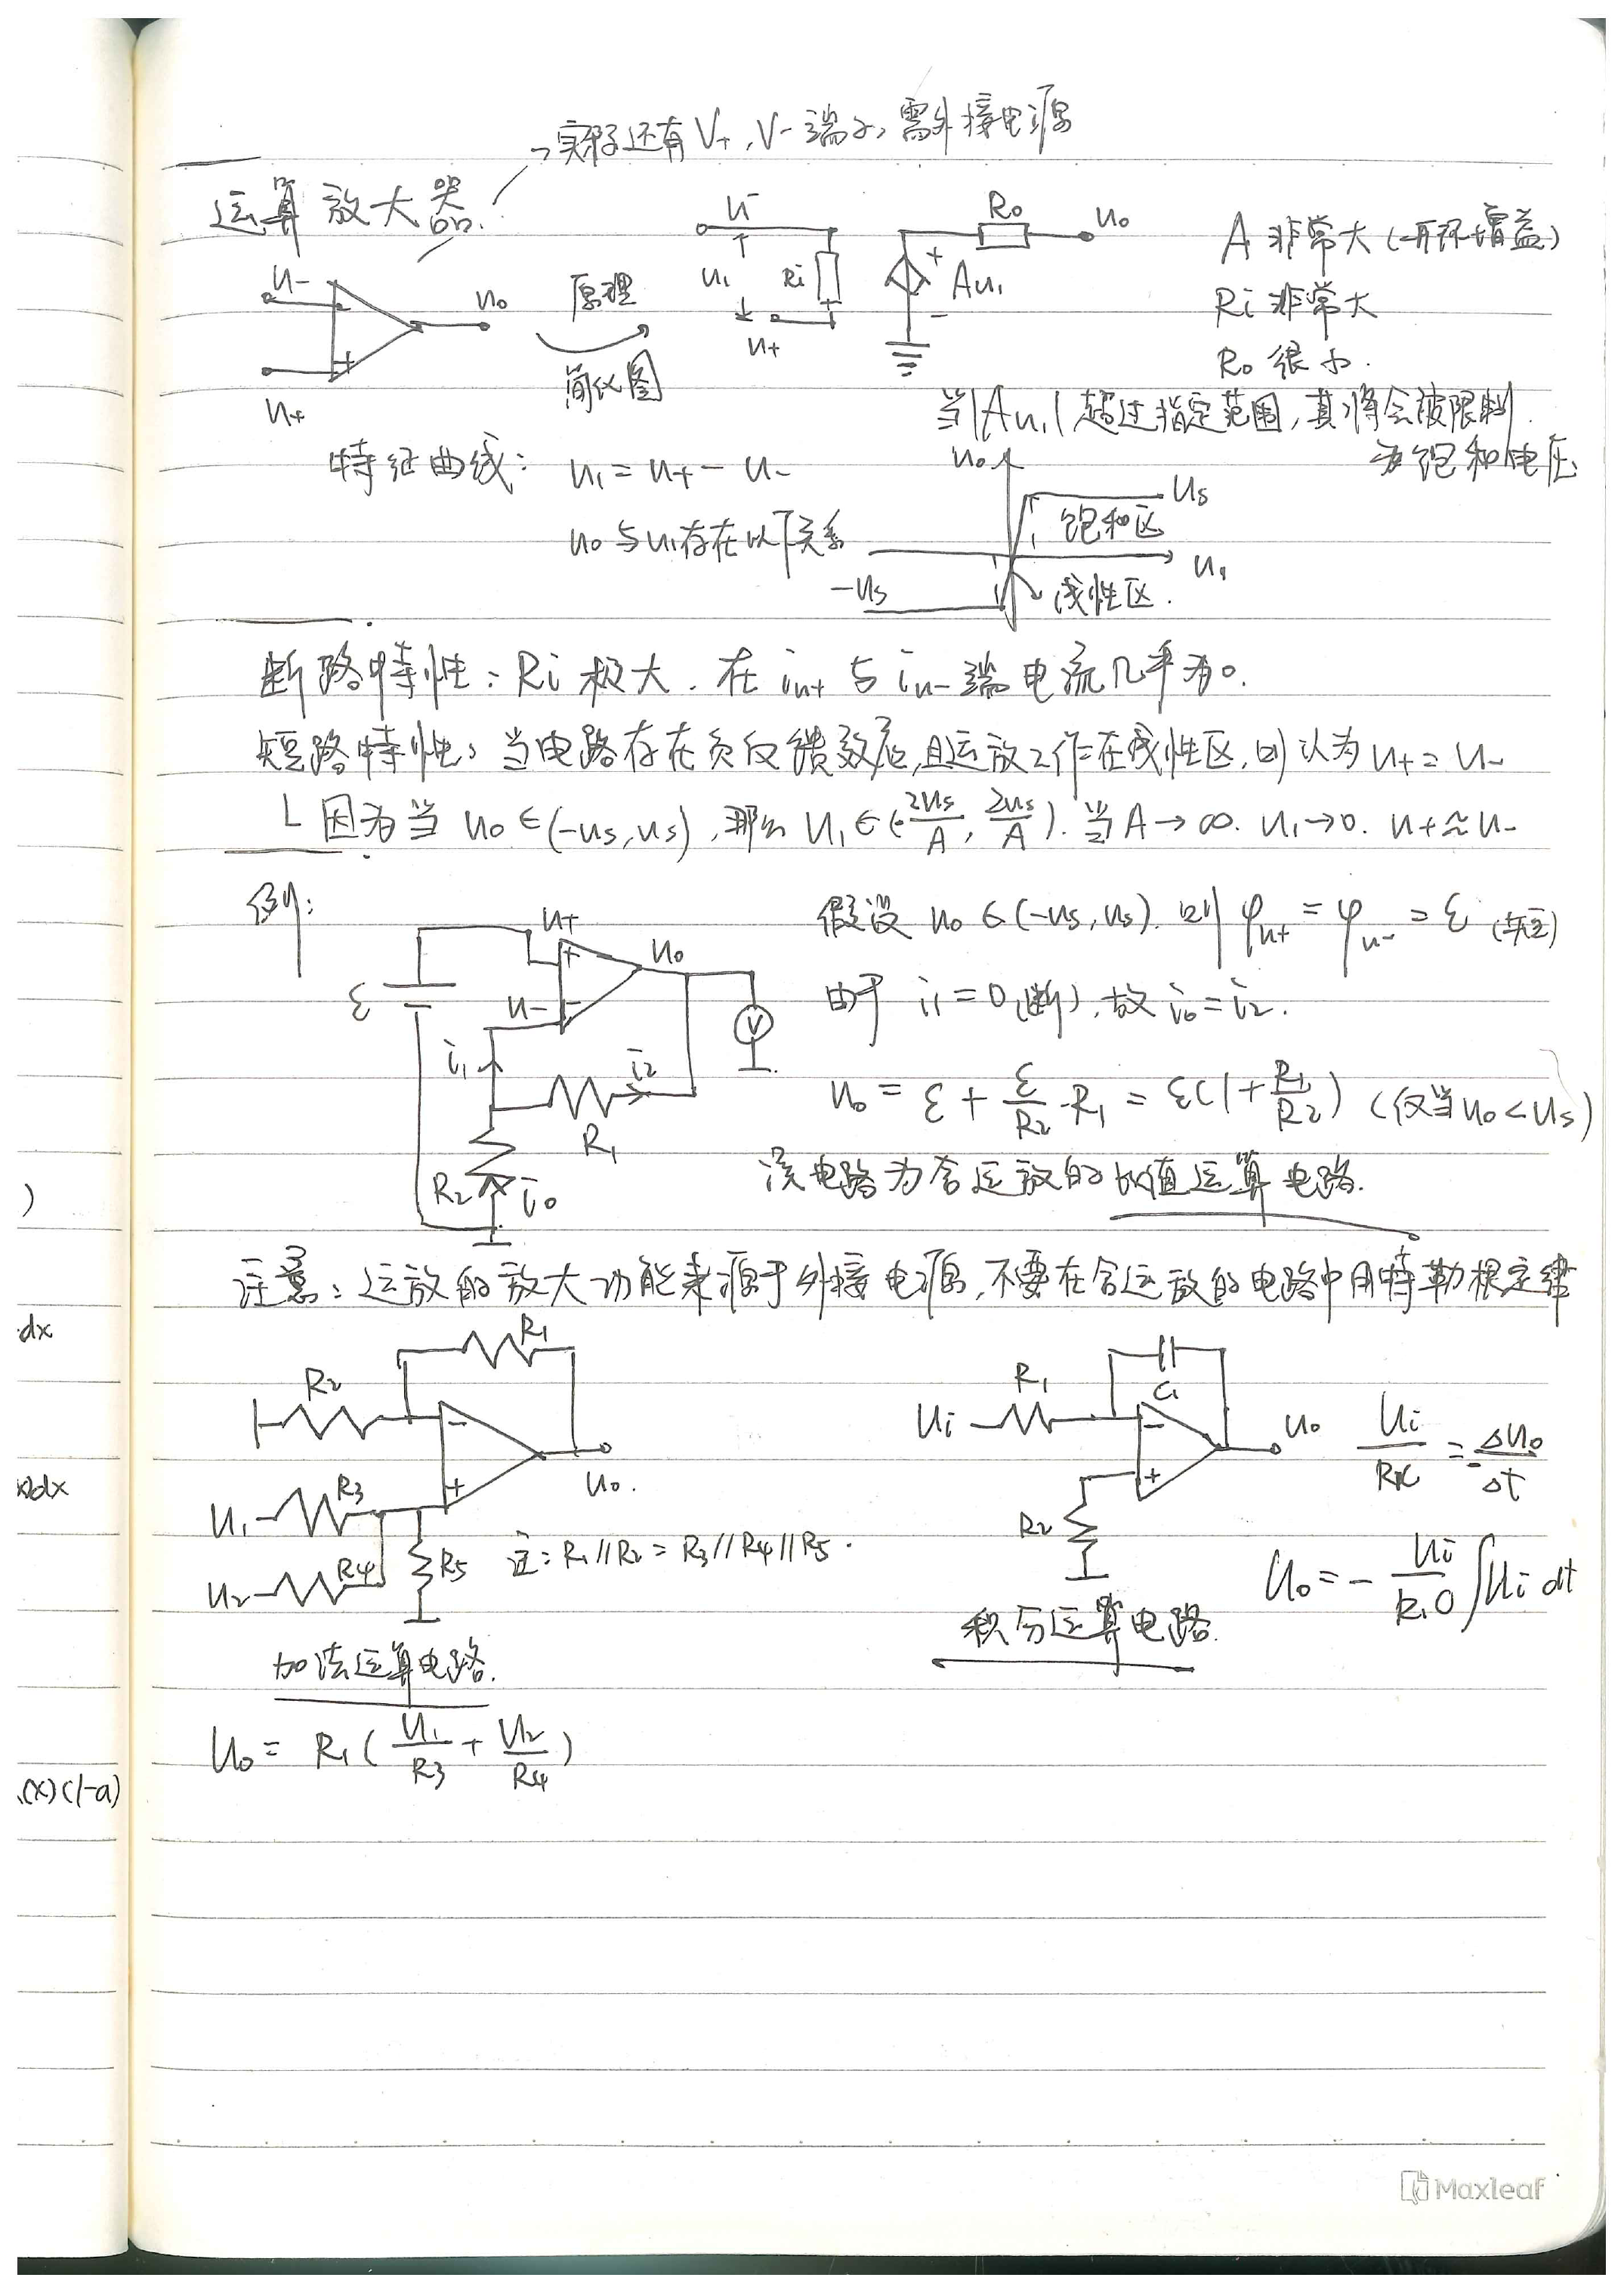 实际还有 V+, V- 端子, 需外接电源
运算放大器
u-
u+
u0
原理
简化图
u-
u1
Ri
u+
R0
u0
+
Au1
-
A 非常大 (开环增益)
Ri 非常大
R0 很小.
当|Au1| 超过指定范围, 其将会被限制
为饱和电压
特征曲线: u1 = u+ - u-
u0 与 u1 存在以下关系
u0
us
饱和区
u1
-us
线性区.
断路特性: Ri 极大. 在 iu+ 与 iu- 端电流几乎为0.
短路特性: 当电路存在负反馈效应, 且运放工作在线性区, 可认为 u+ = u-
因为当 u0 ∈ (-us, us), 那么 u1 ∈ (-2us/A, 2us/A). 当 A → ∞. u1 → 0. u+ ≈ u-
例:
u+
u0
ε
u-
V
i1
i2
R1
R2
i0
假设 u0 ∈ (-us, us). 则 φu+ = φu- = ε (短)
由于 i1 = 0 (断), 故 i0 = i2.
u0 = ε + ε/R2 · R1 = ε(1 + R1/R2) (仅当 u0 < us)
该电路为含运放的比值运算电路.
注意: 运放的放大功能来源于外接电源, 不要在含运放的电路中用特勒根定律
R1
R2
-
+
u0.
u1
R3
u2
R4
R5
注: R1 // R2 = R3 // R4 // R5.
加法运算电路.
u0 = R1 ( u1/R3 + u2/R4 )
R1
C1
ui
-
+
u0
R2
积分运算电路.
= -Δu0/Δt
u0 = - ∫ui dt
)
dx
dx
(x)(1-a)
Maxleaf